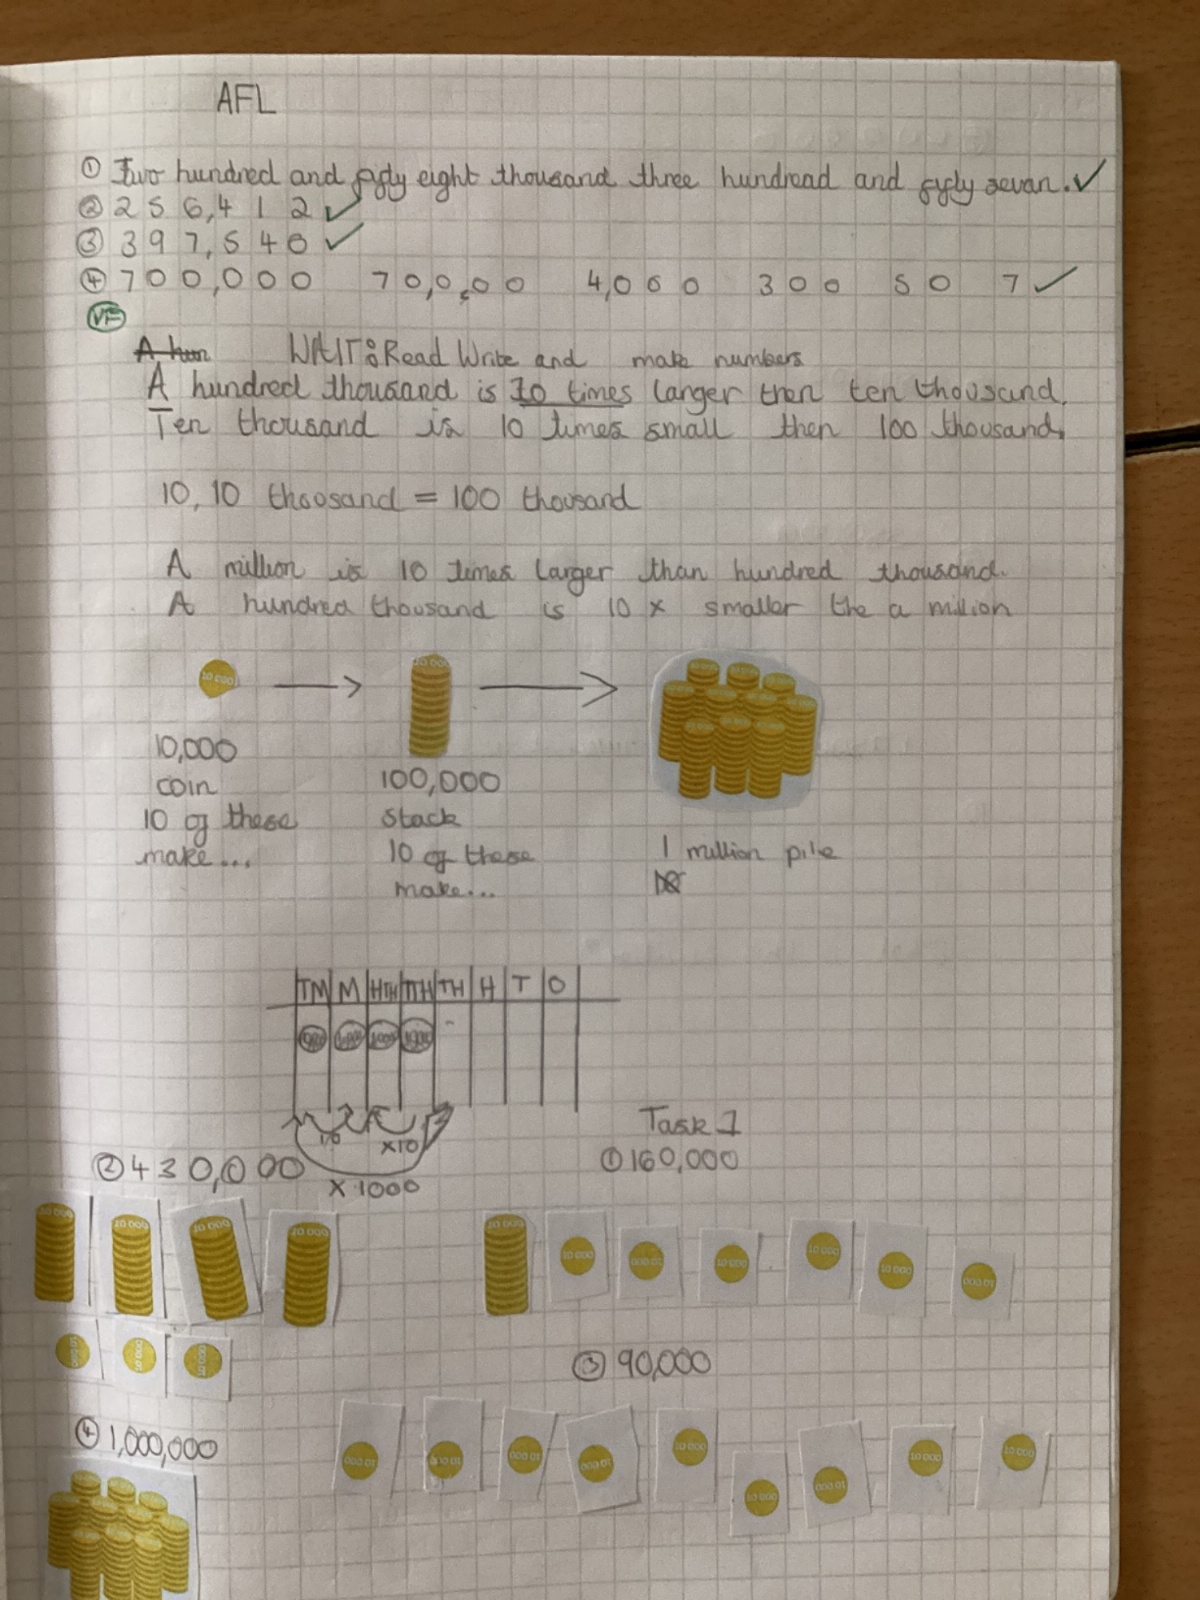 AFL
① Two hundred and fifty eight thousand three hundread and fyfty sevan. ✓
② 256,412 ✓
③ 397,540 ✓
④ 700,000 70,0,00 4,000 300 50 7 ✓
VF
A hun WALT: Read Write and make numbers
A hundred thousand is 10 times larger then ten thousand.
Ten thousand is 10 times small then 100 thousand.
10, 10 thoosand = 100 thousand
A million is 10 times larger than hundred thousand.
A hundred thousand is 10 x smaller the a million
10 000
10 000
10,000
coin
10 of these
make...
100,000
stack
10 of these
make...
1 million pile
TM M HTH TTH TH H T O
10 x10
x 1000
Task 1
② 430,000
① 160,000
10 000 10 000 10 000 10 000
10 000 10 000 10 000 10 000 10 000 10 000 10 000
10 000 10 000 10 000
③ 90,000
④ 1,000,000
10 000 10 000 10 000 10 000 10 000 10 000 10 000 10 000 10 000